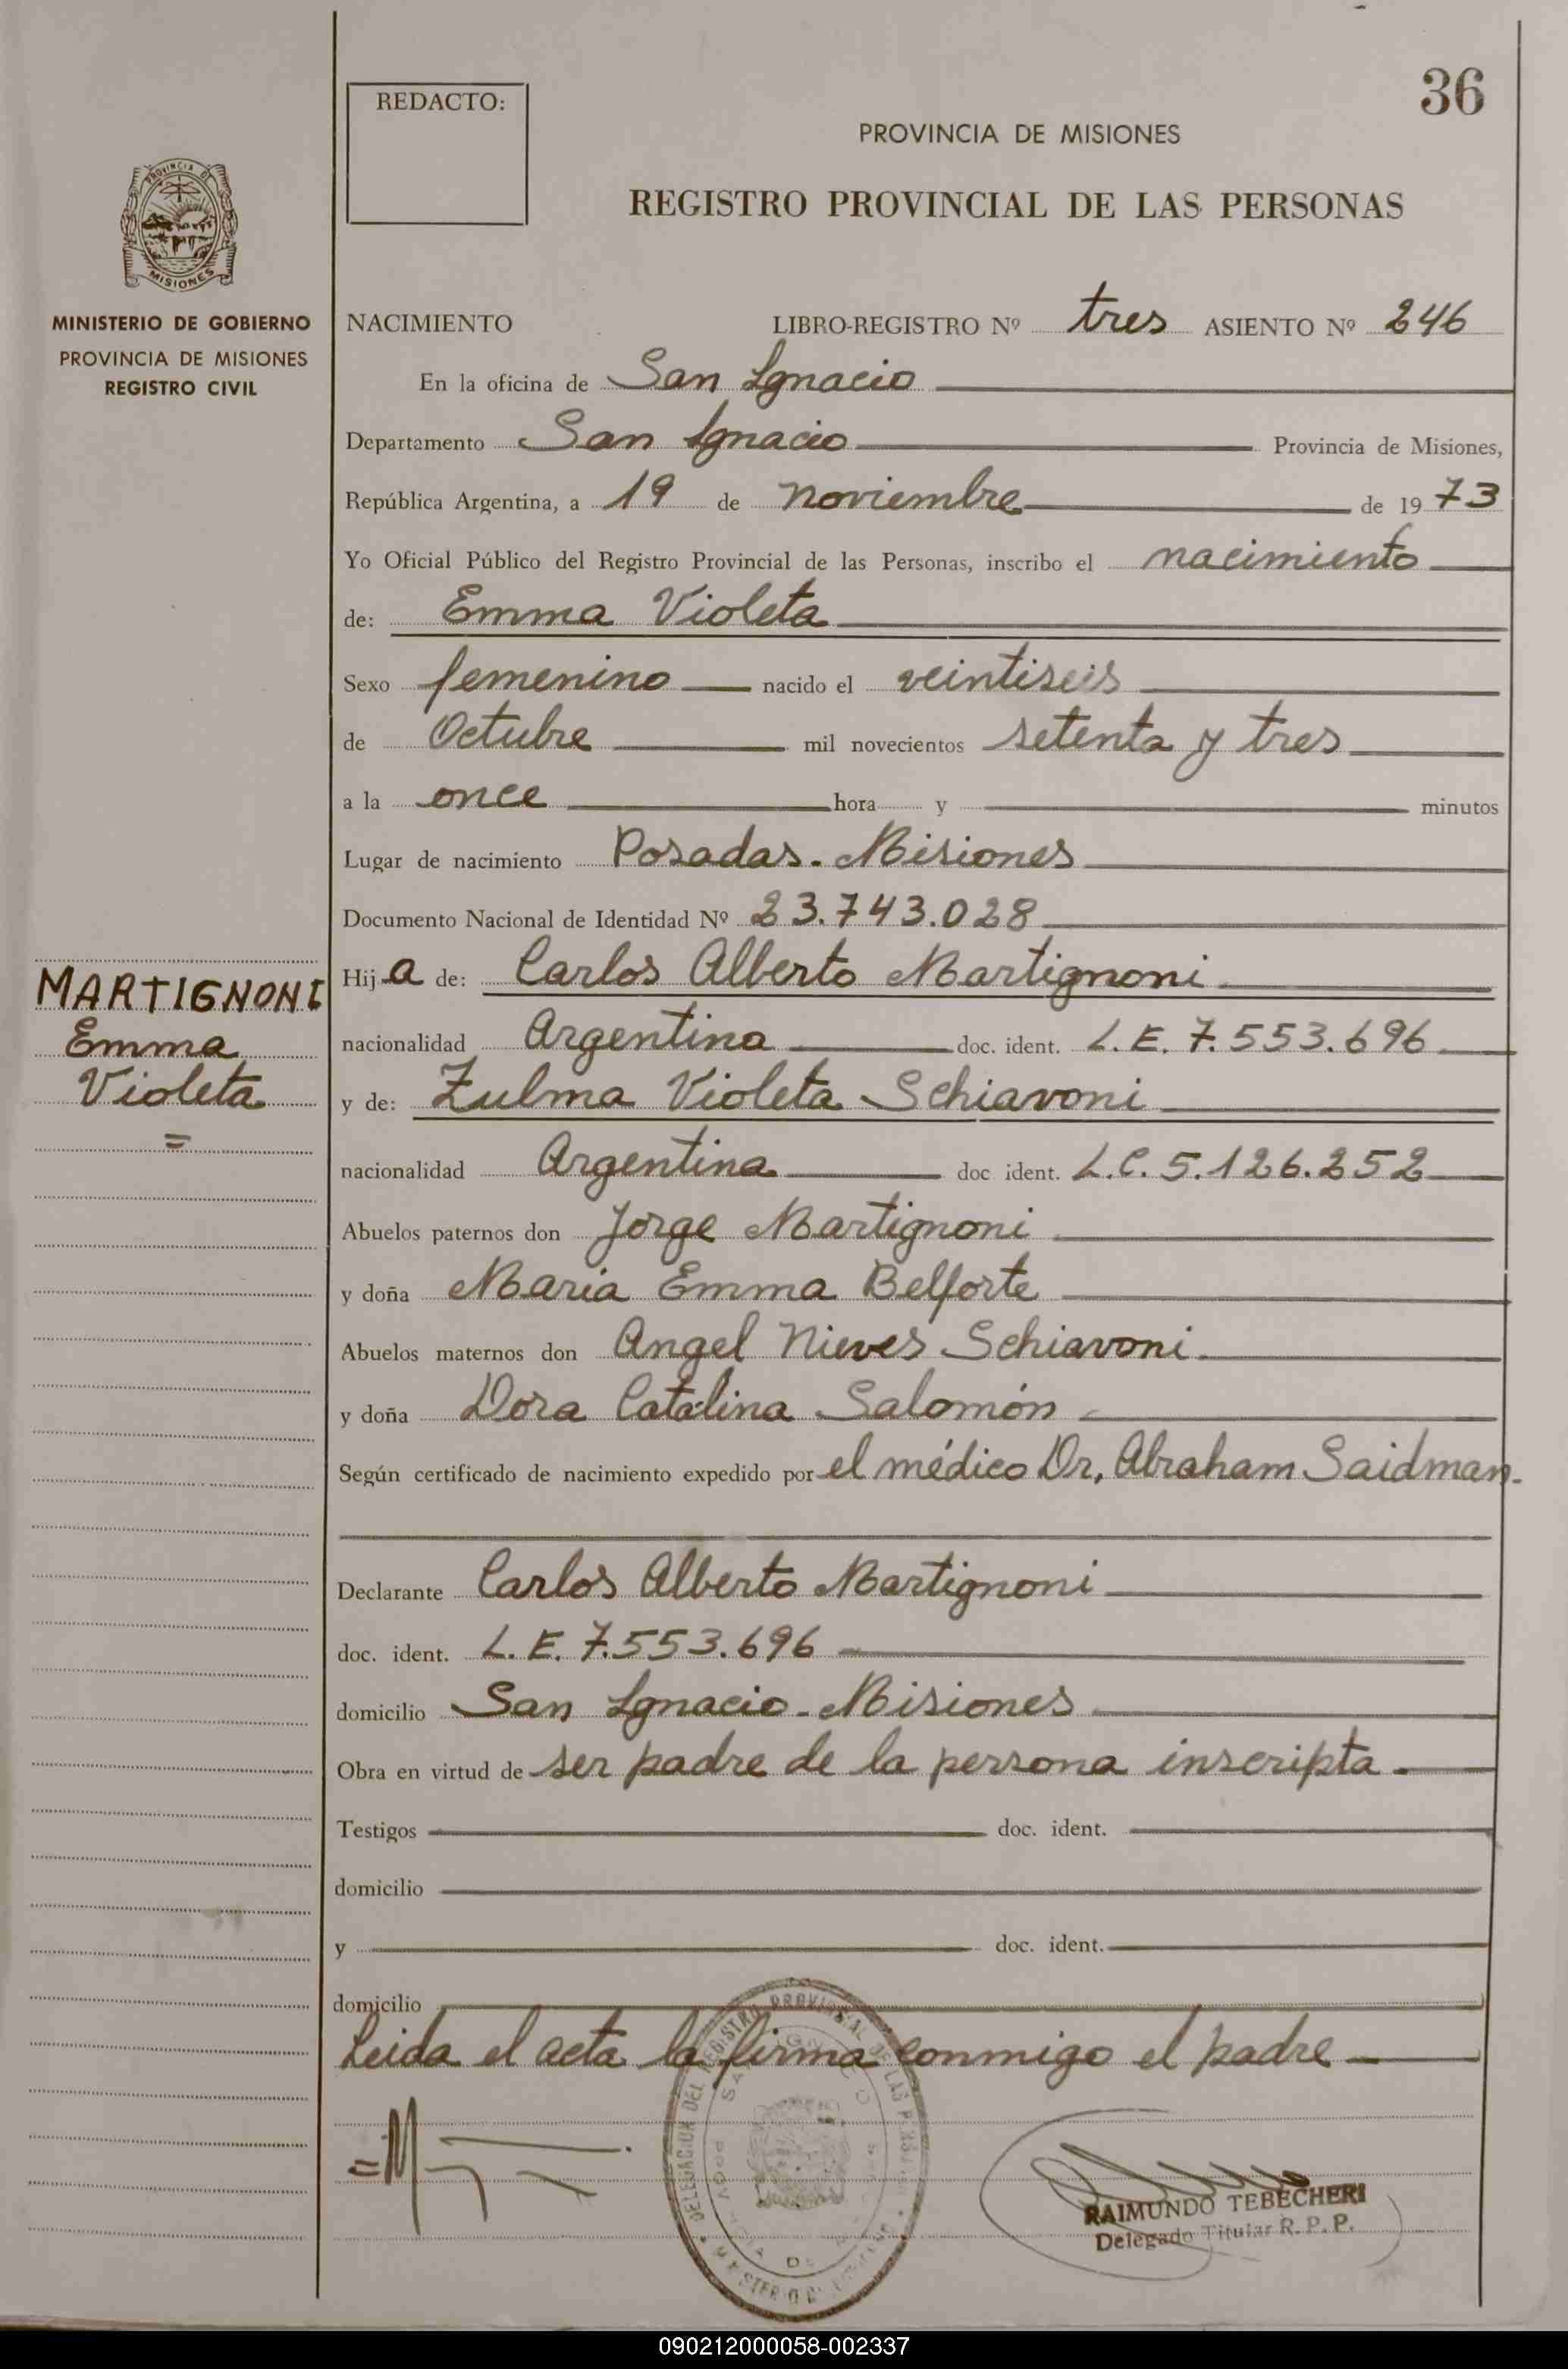 36
REDACTO:
PROVINCIA DE MISIONES
REGISTRO PROVINCIAL DE LAS PERSONAS
PROVINCIA DE
MISIONES
MINISTERIO DE GOBIERNO
PROVINCIA DE MISIONES
REGISTRO CIVIL
NACIMIENTO LIBRO-REGISTRO Nº tres ASIENTO Nº 246
En la oficina de San Ignacio
Departamento San Ignacio Provincia de Misiones,
República Argentina, a 19 de noviembre de 1973
Yo Oficial Público del Registro Provincial de las Personas, inscribo el nacimiento
de: Emma Violeta
Sexo femenino nacido el veintiseis
de Octubre mil novecientos setenta y tres
a la once hora y minutos
Lugar de nacimiento Posadas. Misiones
Documento Nacional de Identidad Nº 23.743.028
MARTIGNONI
Emma
Violeta
=
Hija de: Carlos Alberto Martignoni
nacionalidad Argentina doc. ident. L.E. 7.553.696
y de: Zulma Violeta Schiavoni
nacionalidad Argentina doc ident. L.C. 5.126.252
Abuelos paternos don Jorge Martignoni
y doña Maria Emma Belforte
Abuelos maternos don Angel Nieves Schiavoni.
y doña Dora Catalina Salomón
Según certificado de nacimiento expedido por el médico Dr. Abraham Saidman.
Declarante Carlos Alberto Martignoni
doc. ident. L.E. 7.553.696
domicilio San Ignacio-Misiones
Obra en virtud de ser padre de la persona inscripta.
Testigos doc. ident.
domicilio
y doc. ident.
domicilio
Leida el acta la firma conmigo el padre
DELEGACION DEL REGISTRO PROVINCIAL DE LAS
RAIMUNDO TEBECHERI
Delegado Titular R. P. P.
090212000058-002337